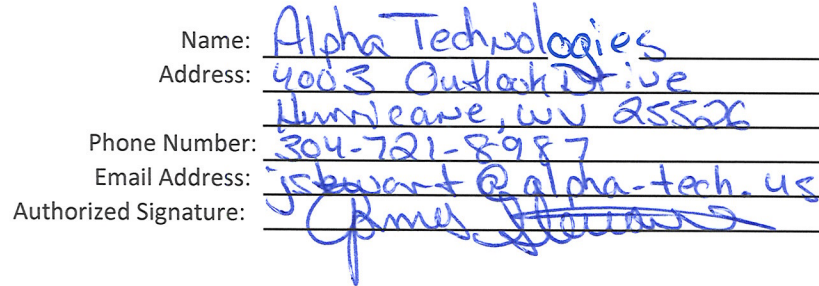 Name: Alpha Technologies
Address: 4003 Outlook Drive
Hurricane, WV 25526
Phone Number: 304-721-8987
Email Address: jstewart@alpha-tech.us
Authorized Signature: James Stewart